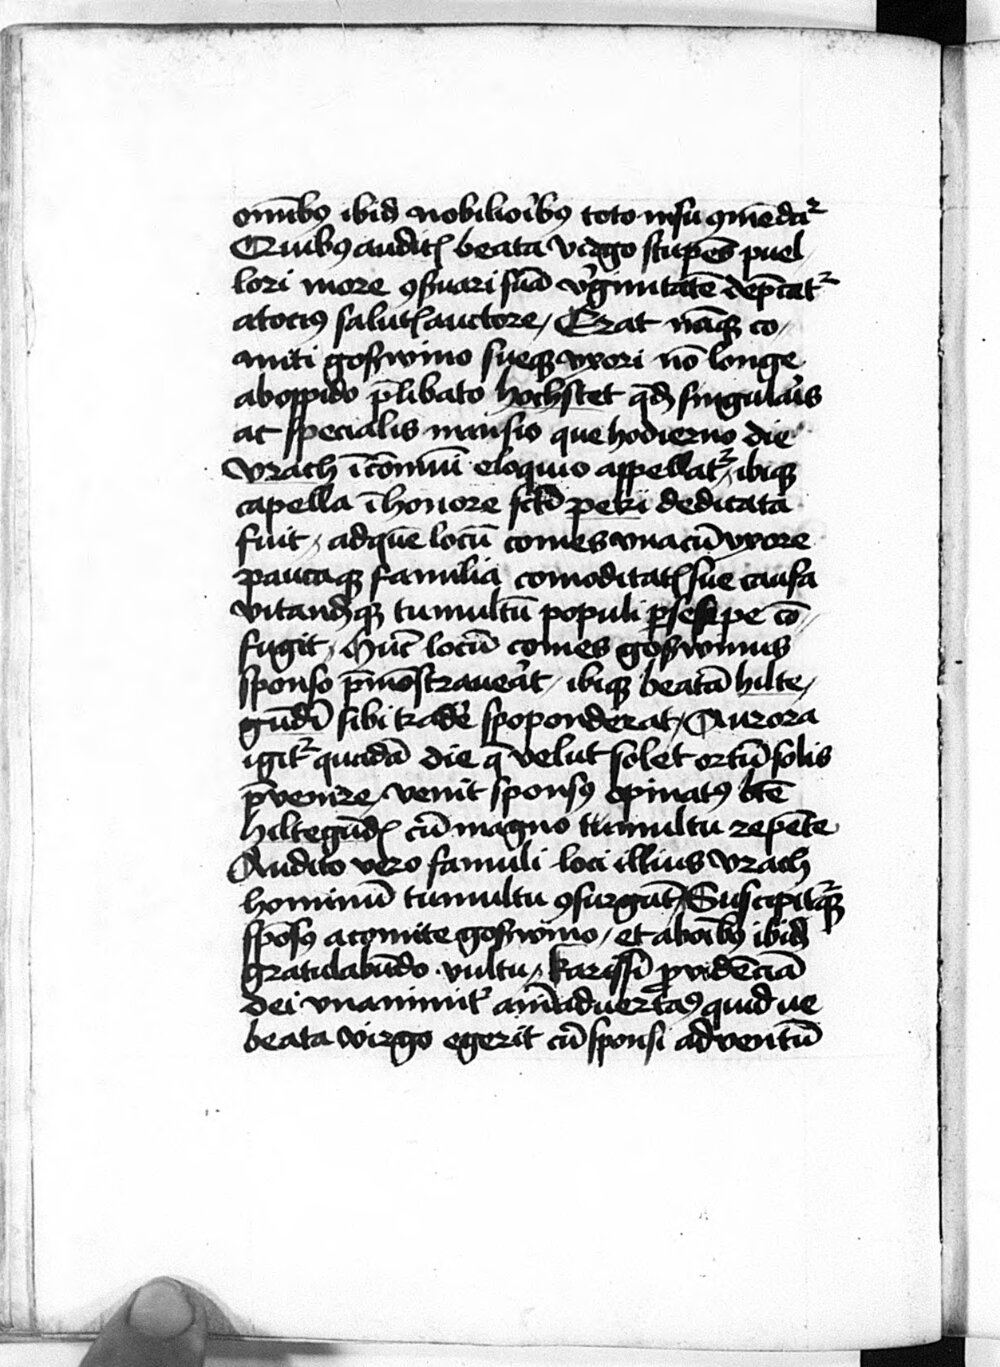 om̄ibꝰ ibiđ nobilioribꝰ toto nisu ꝯmēdat᷑
Quibꝰ auditꝭ beata virgo stupēs puel
lari more ꝯẜuari suā v̓ginitatē dep̄cat᷑
a tocius salutꝭ auctore / Erat nāqꝫ co-
miti goßwino sueqꝫ vxori nō longe
ab oppido p̄libato hochstet qđ singularis
ac specialis mansio que hodierno die
vrach ī cōmuni eloquio appellat᷑ / ibiqꝫ
capella ī honore sct̄i petri dedicata
fuit / ad quē locū comes vna cū vxore
paucaqꝫ familia comoditatꝭ sue causa
vitandiqꝫ tumultū populi ꝑsepe cō-
fugit / Hūc locū comes goßwinus
sponso p̄mōstrauerat / ibiqꝫ beatā hilte-
gūdī sibi trade͛ spoponderat / Aurora
igit᷑ quadā die q̄ velut solet ortū solis
p̄venire venit sponsꝰ opinatꝰ bt̄e
hiltegūdꝭ cū magno tumultu repēte
Audito vero famuli loci illius vrach
hominū tumultu ꝯsurgūt / Suscipit᷑qꝫ
spōsꝰ a comite goßwino / et ab oībꝰ ibiđ
gratulabūdo vultu / karissī ꝓvidēciā
dei vnanimit͛ aīaduertaꝰ quid ve
beata virgo egerit cū sponsi adventū